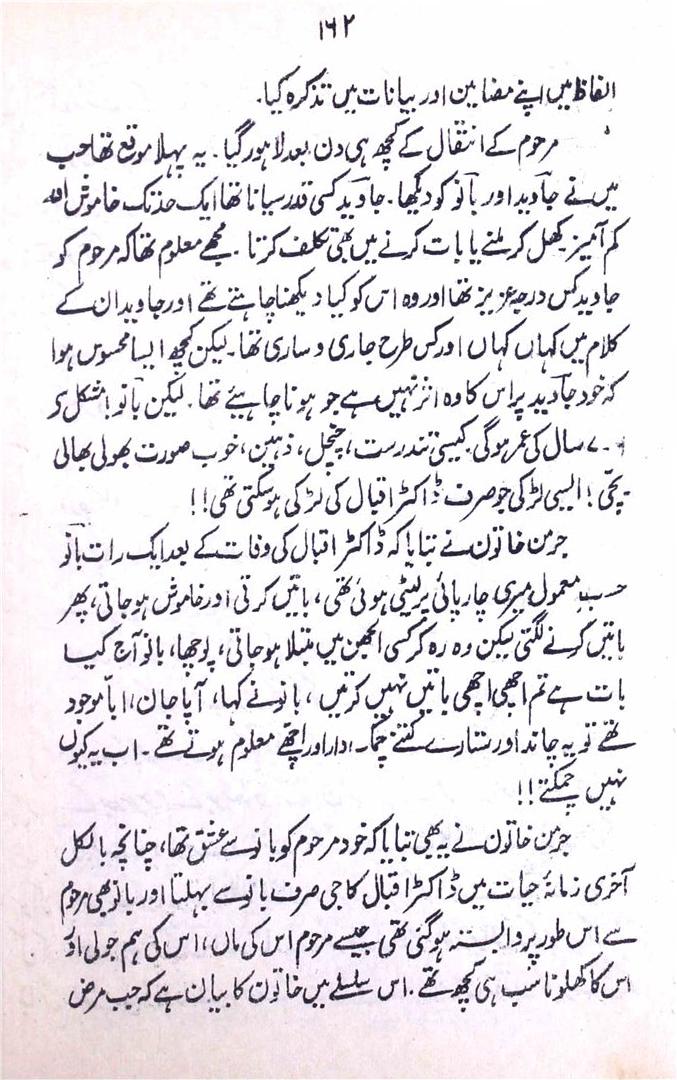 ۱۶۲
الفاظ میں اپنے مضامین اور بیانات میں تذکرہ کیا۔
مرحوم کے انتقال کے کچھ ہی دن بعد لاہور گیا۔ یہ پہلا موقع تھا جب
میں نے جاوید اور بانو کو دیکھا۔ جاوید کسی قدر سیانا تھا ایک حد تک خاموش اور
کم آمیز۔ کھل کر ملنے یا بات کرنے میں بھی تکلف کرتا۔ مجھے معلوم تھا کہ مرحوم کو
جاوید کس درجہ عزیز تھا اور وہ اس کو کیا دیکھنا چاہتے تھے اور جاوید ان کے
کلام میں کہاں کہاں اور کس طرح جاری و ساری تھا۔ لیکن کچھ ایسا محسوس ہوا
کہ خود جاوید پر اس کا وہ اثر نہیں ہے جو ہونا چاہیئے تھا۔ لیکن بانو! مشکل سے
۶-۷ سال کی عمر ہوگی۔ کیسی تندرست، چنچل، ذہین، خوب صورت بھولی بھالی
بچّی! ایسی لڑکی جو صرف ڈاکٹر اقبال کی لڑکی ہوسکتی تھی!!
جرمن خاتون نے بتایا کہ ڈاکٹر اقبال کی وفات کے بعد ایک رات بانو
حسبِ معمول میری چارپائی پر لیٹی ہوئی تھی، باتیں کرتی اور خاموش ہو جاتی، پھر
باتیں کرنے لگتی لیکن وہ رہ کر کسی الجھن میں مبتلا ہو جاتی، پوچھا، بانو آج کیا
بات ہے تم اچھی اچھی باتیں نہیں کرتیں، بانو نے کہا، آپا جان، ابا موجود
تھے تو یہ چاند اور ستارے کتنے چمک دار اور اچھے معلوم ہوتے تھے۔ اب یہ کیوں
نہیں چمکتے!!
جرمن خاتون نے یہ بھی بتایا کہ خود مرحوم کو بانو سے عشق تھا، چنانچہ بالکل
آخری زمانۂ حیات میں ڈاکٹر اقبال کا جی صرف بانو سے بہلتا اور بانو بھی مرحوم
سے اس طور پر وابستہ ہوگئی تھی جیسے مرحوم اس کی ماں، اس کی ہم جولی اور
اس کا کھلونا سب ہی کچھ تھے۔ اس سلسلے میں خاتون کا بیان ہے کہ جب مرض